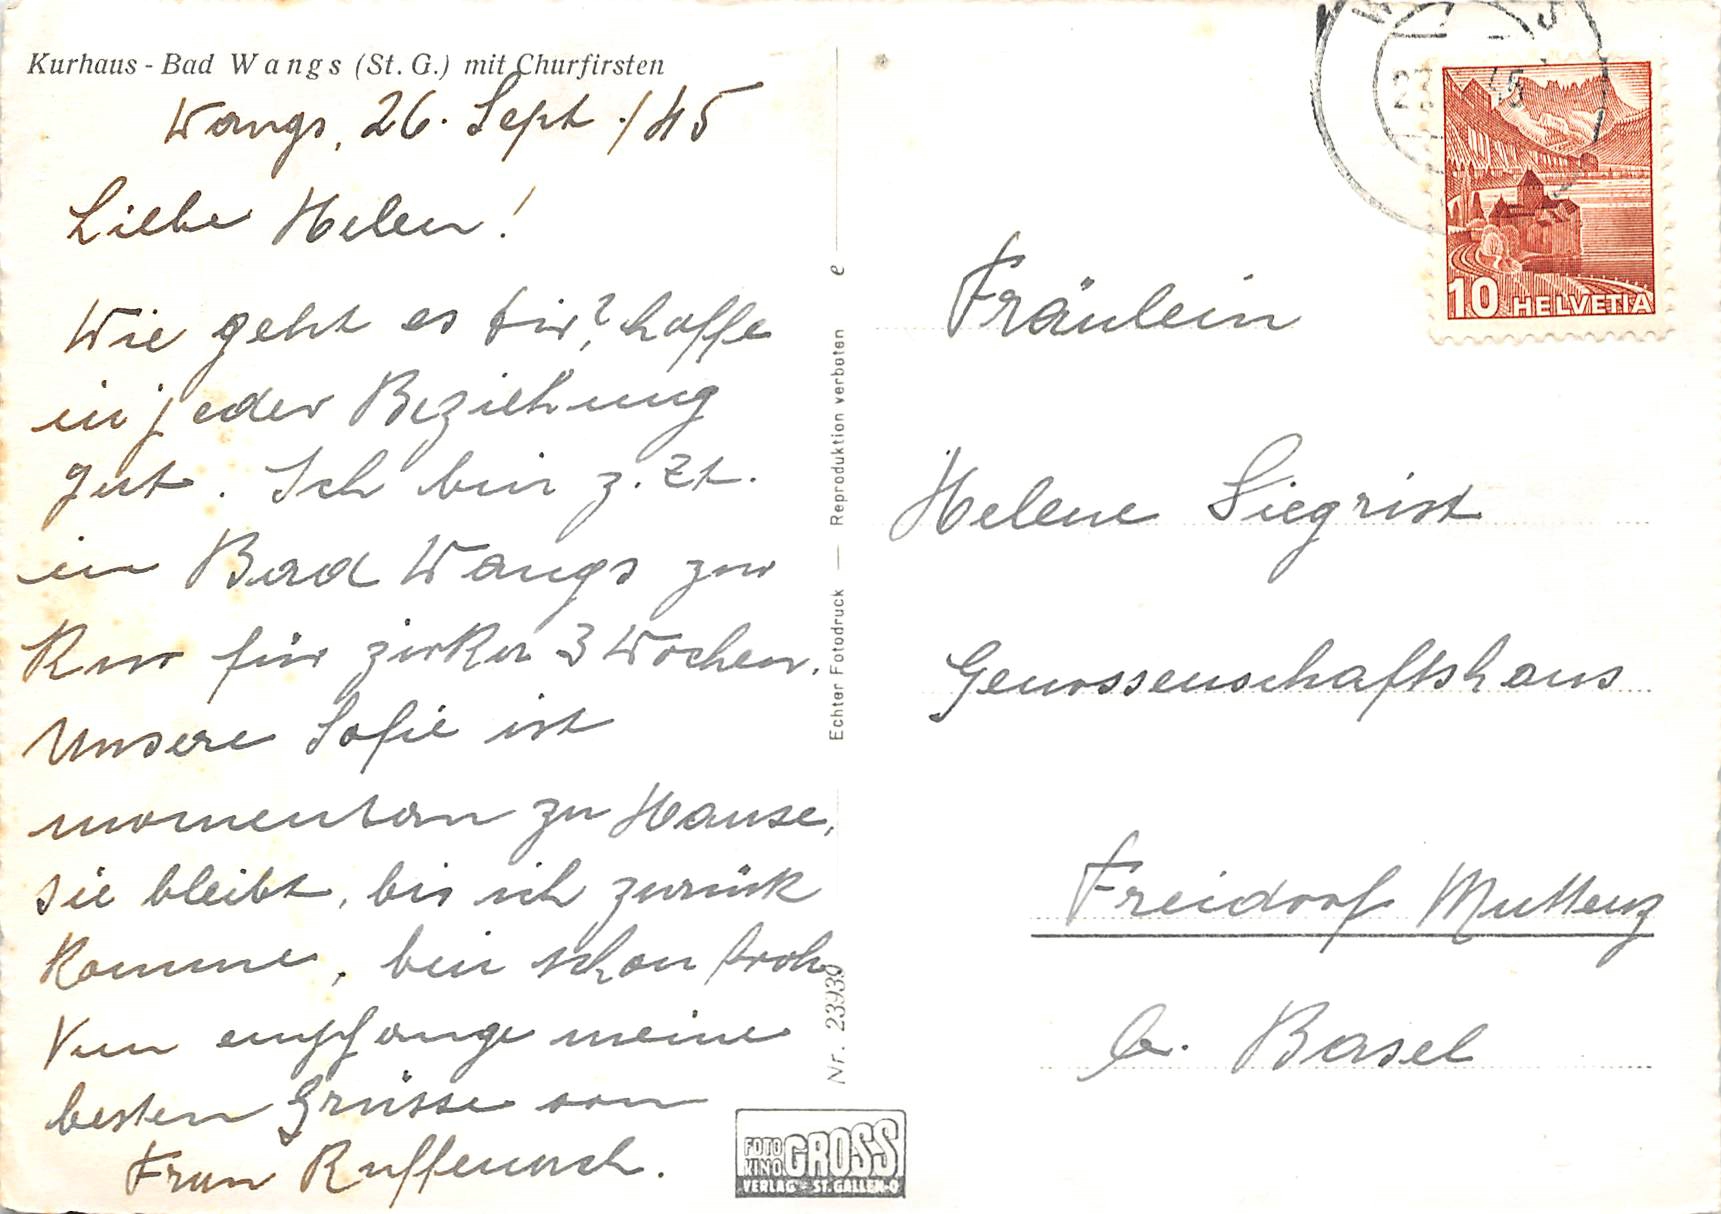 Kurhaus - Bad Wangs (St. G.) mit Churfirsten
Wangs, 26. Sept. /45
Liebe Helen!
Wie geht es dir? hoffe
in jeder Beziehung
gut. Ich bin z. Zt.
in Bad Wangs zur
Kur für zirka 3 Wochen.
Unsere Sofie ist
momentan zu Hause,
sie bleibt, bis ich zurück
komme, bin schon froh.
Nun empfange meine
besten Grüsse von
Frau Ruffenach.
Echter Fotodruck — Reproduktion verboten e
Nr. 23939
FOTO KINO GROSS
VERLAG - ST. GALLEN-O
10 HELVETIA
Fräulein
Helene Siegrist
Genossenschaftshaus
Freidorf Muttenz
b. Basel